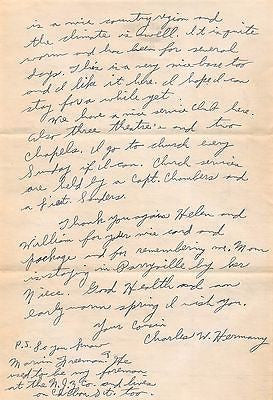 is a nice country region and
the climate is swell. It is quite
warm and has been for several
days. This is a very nice base too
and I like it here. I hope I can
stay for a while yet.
We have a nice service club here.
Also three theatre's and two
Chapels. I go to church every
Sunday if I can. Church services
are held by a Capt. Chambers and
a First. Sanders.
Thank you again Helen and
William for your nice card and
package and for remembering me. Mom
is staying in Parryville by her
Niece. Good Health and an
early warm spring I wish you.
Your Cousin
Charles W. Hermany
P.S. Do you know
Marvin Freeman? He
used to be my foreman
at the N.J.Z.Co. and lives
on St. too.